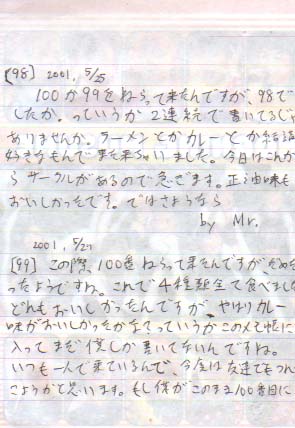 [98] 2001, 5/25
100か99をねらって来たんですが、98で
したか。っていうか2連続で書いてるじゃ
ありませんか。ラーメンとかカレーとか結構
好きなもんで又来ちゃいました。今日はこれか
らサークルがあるので急ぎます。正油味も
おいしかったです。ではさようなら
by Mr.
2001, 5/27
[99] この際、100番ねらって来たんですがだめだ
ったようですね。これで4種類全て食べました
どれもおいしかったんですが、やはりカレー
味がおいしかったかなっていうかこのメモ帳に
入ってまだ僕しか書いてないんですね。
いつも一人で来ているんで、今度は友達でもつれ
こようかと思います。もし僕がこのまま100番目に